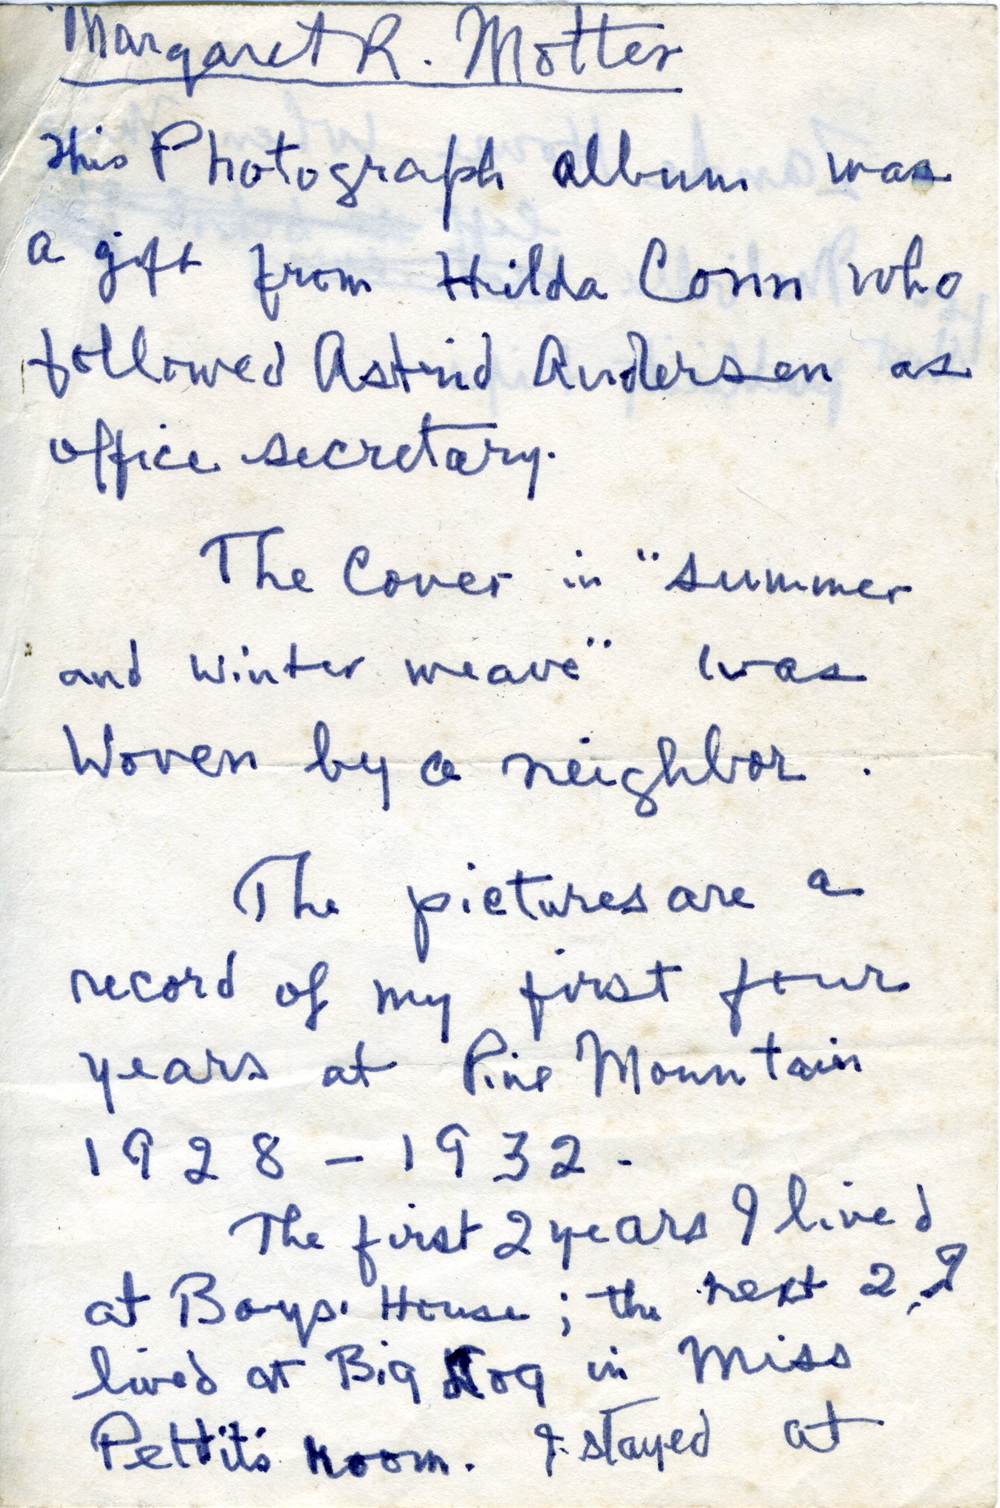 Margaret R. Motter
This Photograph album was
a gift from Hilda Conn who
followed Astrid Andersen as
office secretary.
The Cover in "summer
and winter weave" was
Woven by a neighbor.
The pictures are a
record of my first four
years at Pine Mountain
1928 - 1932.
The first 2 years I lived
at Boys' House; the next 2, I
lived at Big Log in Miss
Pettit's room. I stayed at